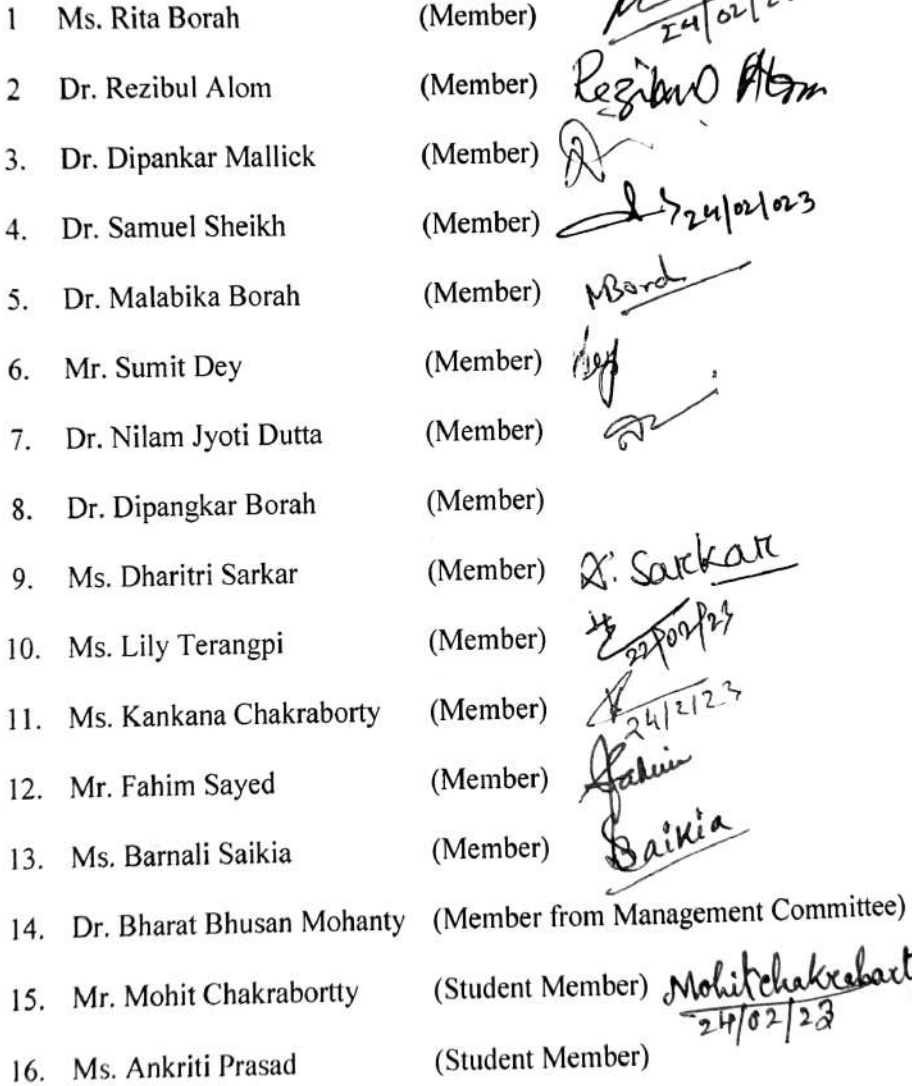 1 Ms. Rita Borah (Member) 24/02/2
2 Dr. Rezibul Alom (Member) Rezibul Alom
3. Dr. Dipankar Mallick (Member)
4. Dr. Samuel Sheikh (Member) 24/02/023
5. Dr. Malabika Borah (Member) MBorah
6. Mr. Sumit Dey (Member) Dey
7. Dr. Nilam Jyoti Dutta (Member)
8. Dr. Dipangkar Borah (Member)
9. Ms. Dharitri Sarkar (Member) D. Sarkar
10. Ms. Lily Terangpi (Member) 22/02/23
11. Ms. Kankana Chakraborty (Member) 24/2/23
12. Mr. Fahim Sayed (Member) Fahim
13. Ms. Barnali Saikia (Member) BSaikia
14. Dr. Bharat Bhusan Mohanty (Member from Management Committee)
15. Mr. Mohit Chakrabortty (Student Member) Mohit chakrabart
24/02/23
16. Ms. Ankriti Prasad (Student Member)